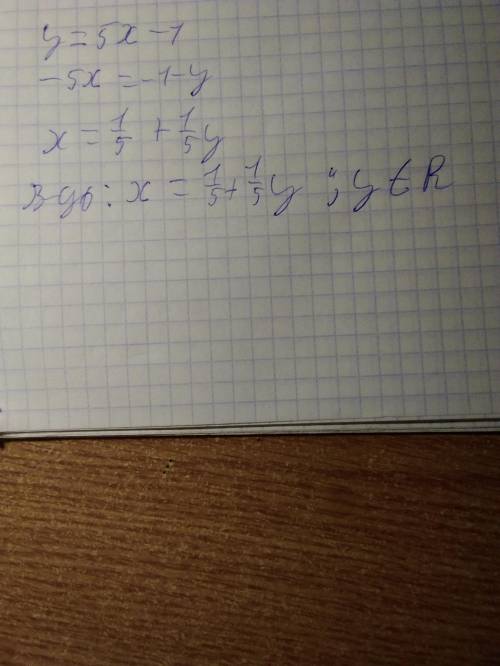 y = 5x - 1
-5x = -1 - y
x = 1/5 + 1/5 y
x = 1/5 + 1/5 y ; y ∈ R